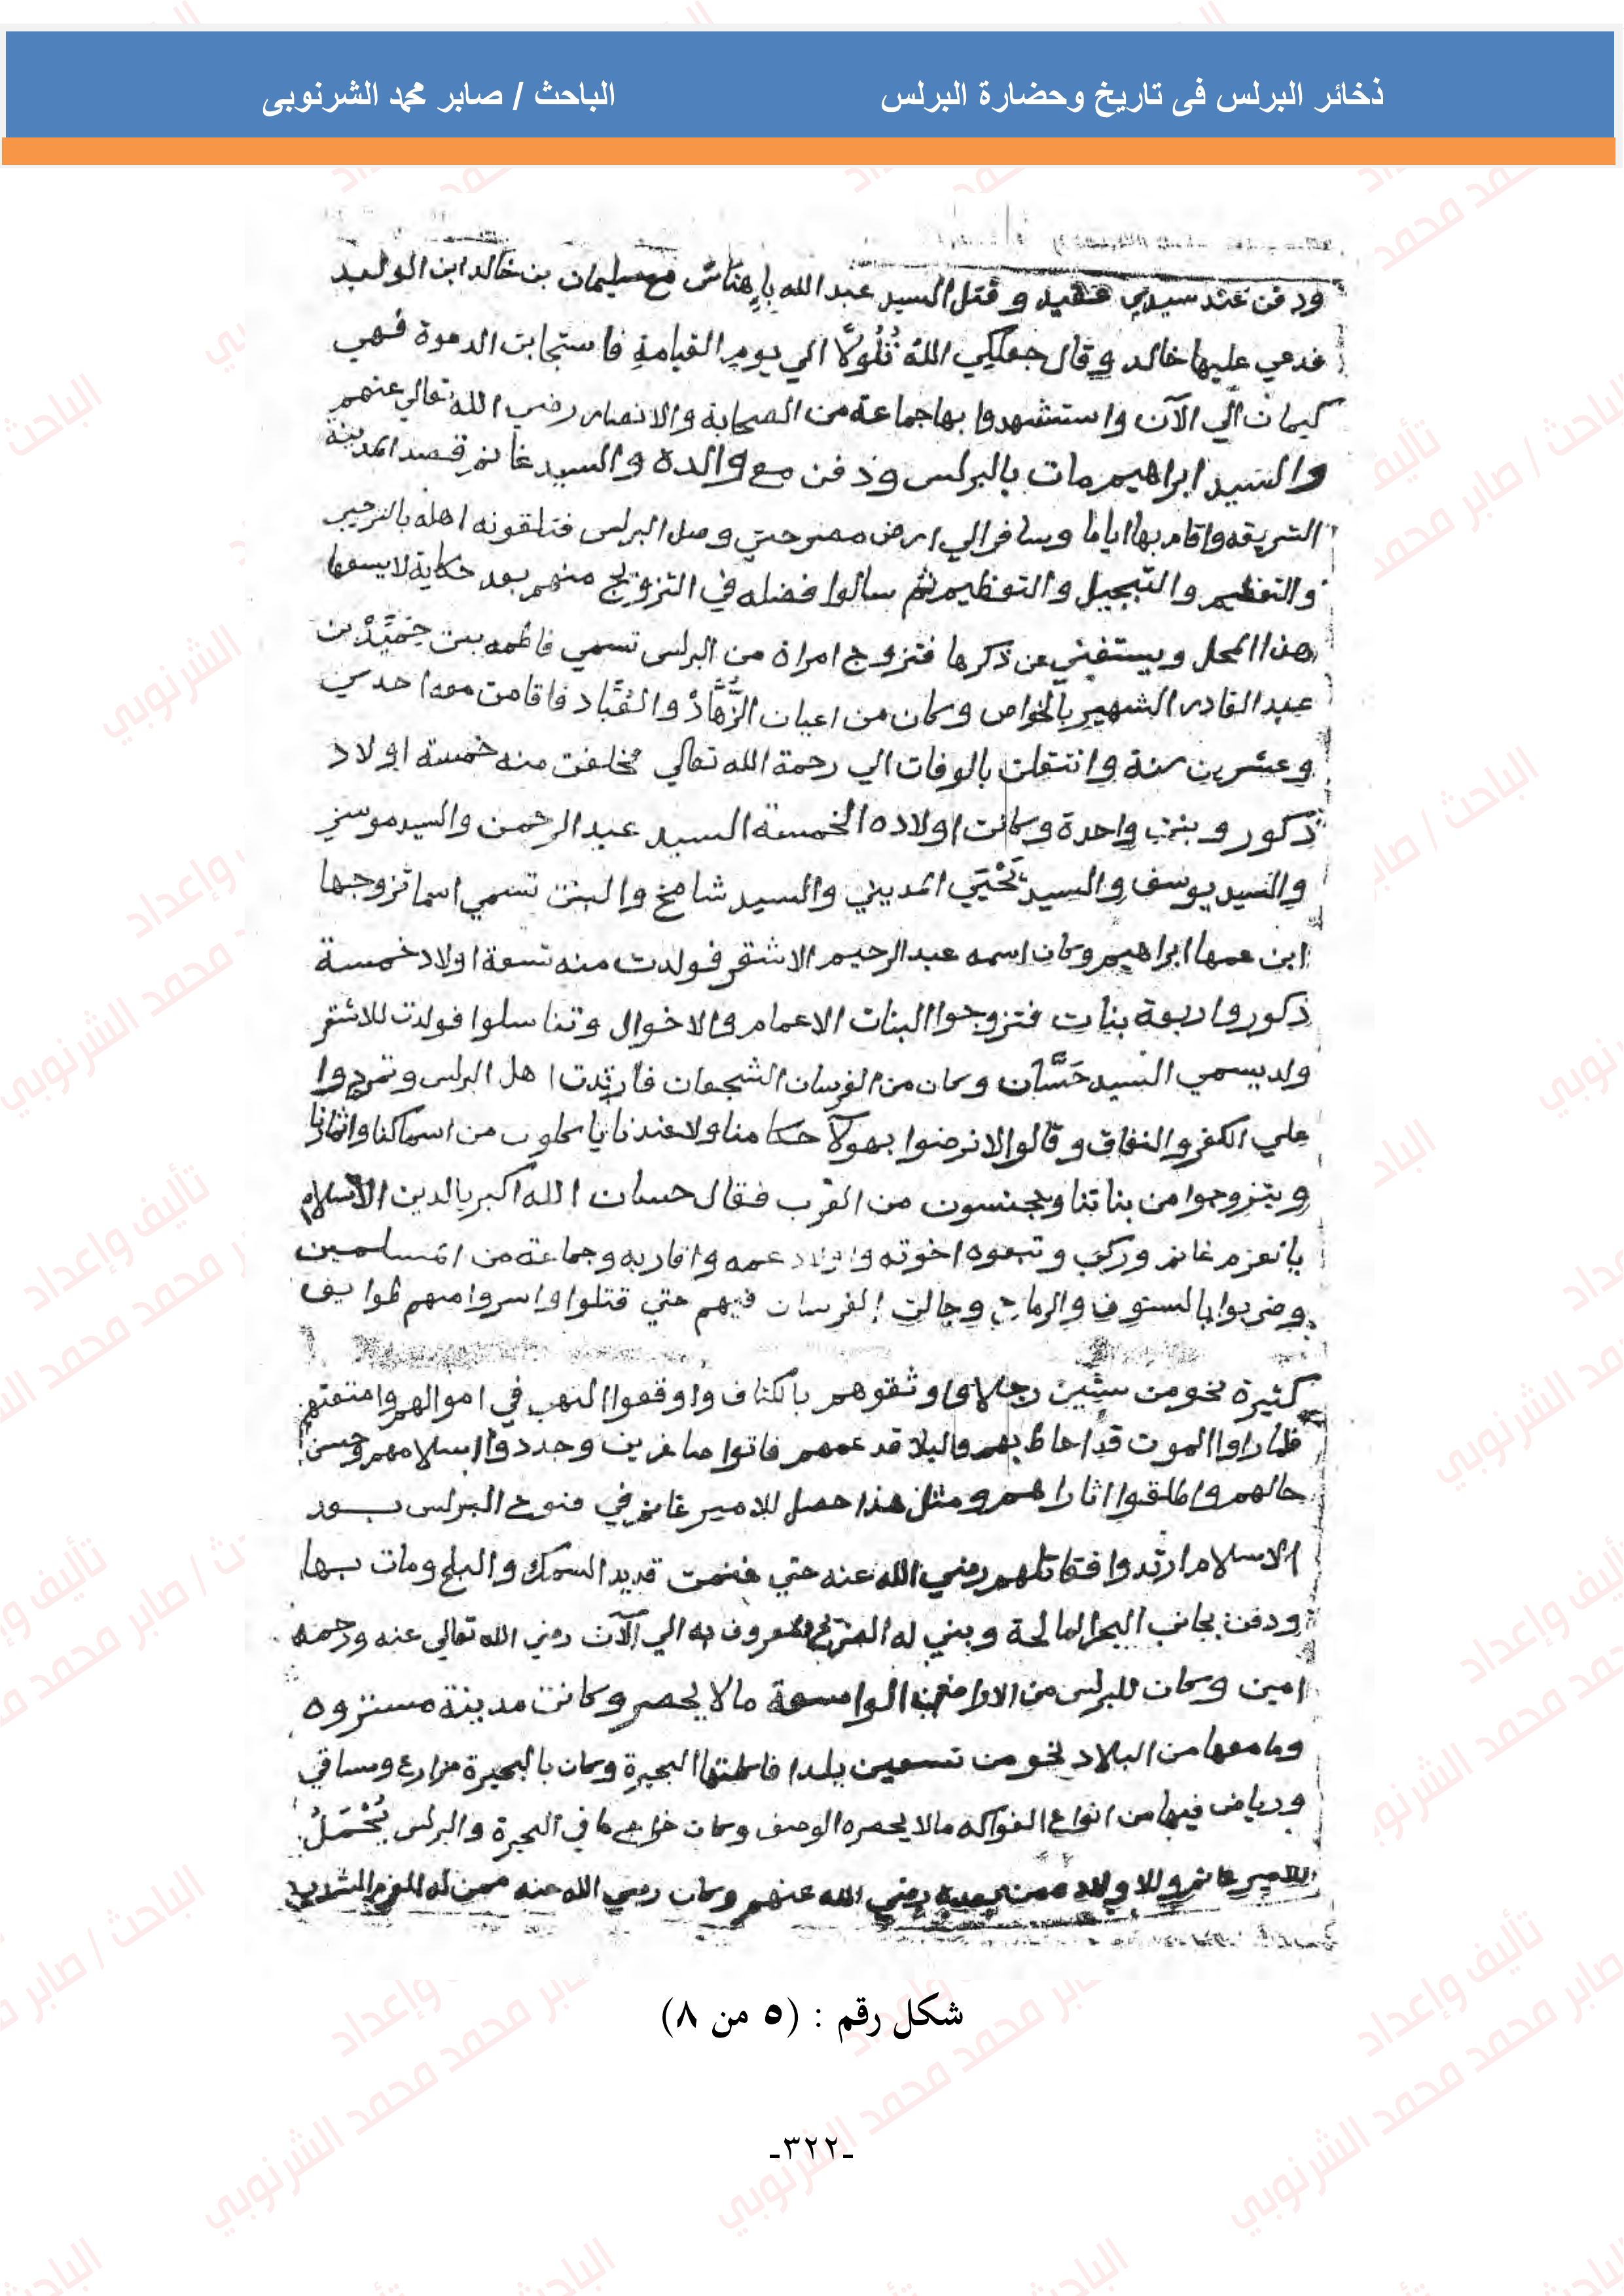 ذخائر البرلس فى تاريخ وحضارة البرلس
الباحث / صابر محمد الشرنوبى
ودفن عند سيدي عقيد وقتل السيد عبد الله باهناس مع سليمان بن خالد ابن الوليد
فدعي عليها خالد وقال جعلكي الله تُلُولًا الي يوم القيامة فاستجابت الدعوة فهي
كيمان الي الآن واستشهدوا بها جماعة من الصحابة والانصار رضي الله تعالي عنهم
والسيد ابراهيم مات بالبرلس ودفن مع والده والسيد غانم قصد المدينة
الشريفه واقام بها اياما وسافر الي ارض مصر حتي وصل البرلس فتلقونه اهله بالترحيب
والتعظيم والتبجيل والتعظيم ثم سالوا فضله في التزويج منهم بعد حكاية لا يسعها
هذا المحل ويستغني عن ذكرها فتزوج امراة من البرلس تسمي فاطمه بنت حميد بن
عبد القادر الشهير بالخواص وكان من اعيان الزُّهَّاد والعُبَّاد فاقامت معه احدي
وعشرين سنة وانتقلت بالوفات الي رحمة الله تعالي مخلفت منه خمسة اولاد
ذكور وبنت واحدة وكانت اولاده الخمسة السيد عبد الرحمن والسيد موسي
والسيد يوسف والسيد يَحْيَي المديني والسيد شامخ والبنت تسمي اسما تزوجها
ابن عمها ابراهيم وكان اسمه عبد الرحيم الاشقر فولدت منه تسعة اولاد خمسة
ذكور واربعة بنات فتزوجوا البنات الاعمام والاخوال وتناسلوا فولدت للاشقر
ولد يسمي السيد حَسَّان وكان من الفرسان الشجعان فارتدت اهل البرلس وتمردوا
علي الكفر والنفاق وقالوا لا نرضوا بهولا حكامنا ولا عندنا ياكلون من اسماكنا واثمارنا
ويتزوجوا من بناتنا ويجنسون من العرب فقال حسان الله اكبر يالدين الاسلام
يا نعزم غانم وركب وتبعوه اخوته واولاد عمه واقاربه وجماعة من المسلمين
وضربوا بالسيوف والرماح وجالت الفرسان فيهم حتي قتلوا واسروا منهم طوايف
كثيرة نحو من ستين رجلا واوثقوهم بالكتاف واوقعوا النهب في اموالهم وامتعتهم
فلما راوا الموت قد احاط بهم والبلا قد عمهم فاتوا صاغرين وجددوا اسلامهم وحسن
حالهم واطلقوا اثاراهم ومثل هذا حصل للامير غانم في فتوح البرلس بعد
الاسلام ارتدوا فقاتلهم رضي الله عنه حتي فنمت قديد السمك والبلح ومات بها
ودفن بجانب البحر المالحة وبني له المعروف به الي الآن رضي الله تعالي عنه ورحمه
امين وكان للبرلس من الاراضي الواسعة مالا يحصر وكانت مدينة مستزوه
وما معها من البلاد نحو من تسعين بلدا فاكلتها البحيرة وكان بالبحيرة مزارع ومساقي
ورياض فيها من انواع الفواكه مالا يحصره الوصف وكان خراج ما في البحيرة والبرلس يُحْمَلُ
للامير غانم وللاولاد من بعده رضي الله عنهم وكان رضي الله عنه ممن له العزم الشديد
شكل رقم : (٥ من ٨)
-٣٢٢-